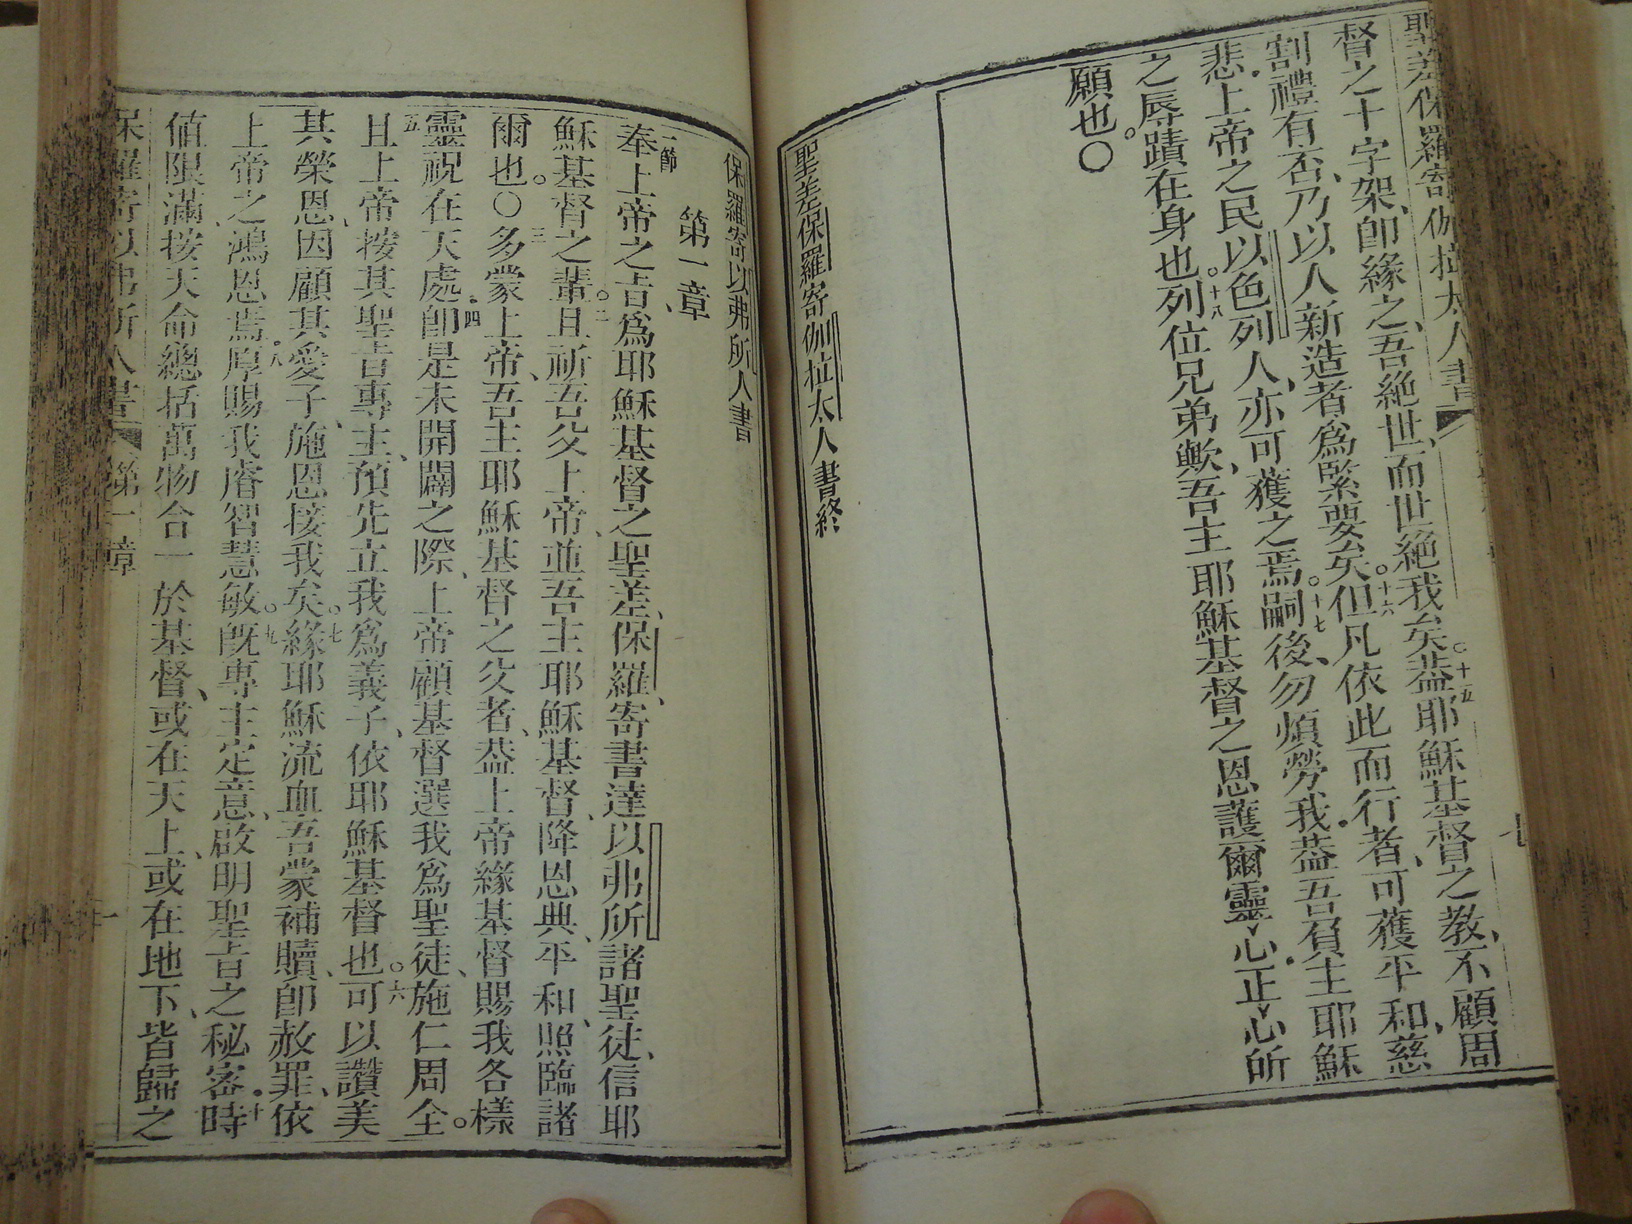 聖差保羅寄伽拉太人書
督之十字架、卽緣之、吾絶世、而世絶我矣。十五葢耶穌基督之教、不顧周
割禮有否、乃以人新造者爲緊要矣。十六但凡依此而行者、可獲平和、慈
悲.上帝之民以色列人、亦可獲之焉。十七嗣後、勿煩勞我.葢吾負主耶穌
之辱蹟在身也。十八列位兄弟歟、吾主耶穌基督之恩護爾靈心.正心所
願也。〇
聖差保羅寄伽拉太人書終
保羅寄以弗所人書
第一章
一節奉上帝之旨、爲耶穌基督之聖差、保羅、寄書達以弗所諸聖徒、信耶
穌基督之輩。二且祈吾父上帝、並吾主耶穌基督、降恩典、平和、照臨諸
爾也。〇三多蒙上帝、吾主耶穌基督之父者、葢上帝緣基督賜我各樣
靈祝在天處.四卽是未開闢之際、上帝顧基督選我爲聖徒、施仁周全。
五且上帝按其聖旨專主、預先立我爲義子、依耶穌基督也。六可以讚美
其榮恩、因顧其愛子、施恩接我矣。七緣耶穌流血、吾蒙補贖、卽赦罪、依
上帝之鴻恩焉.八厚賜我睿智慧敏。九旣專主定意、啟明聖旨之秘密.十時
値限滿、按天命總括萬物合一於基督、或在天上、或在地下、皆歸之
保羅寄以弗所人書 第一章 一